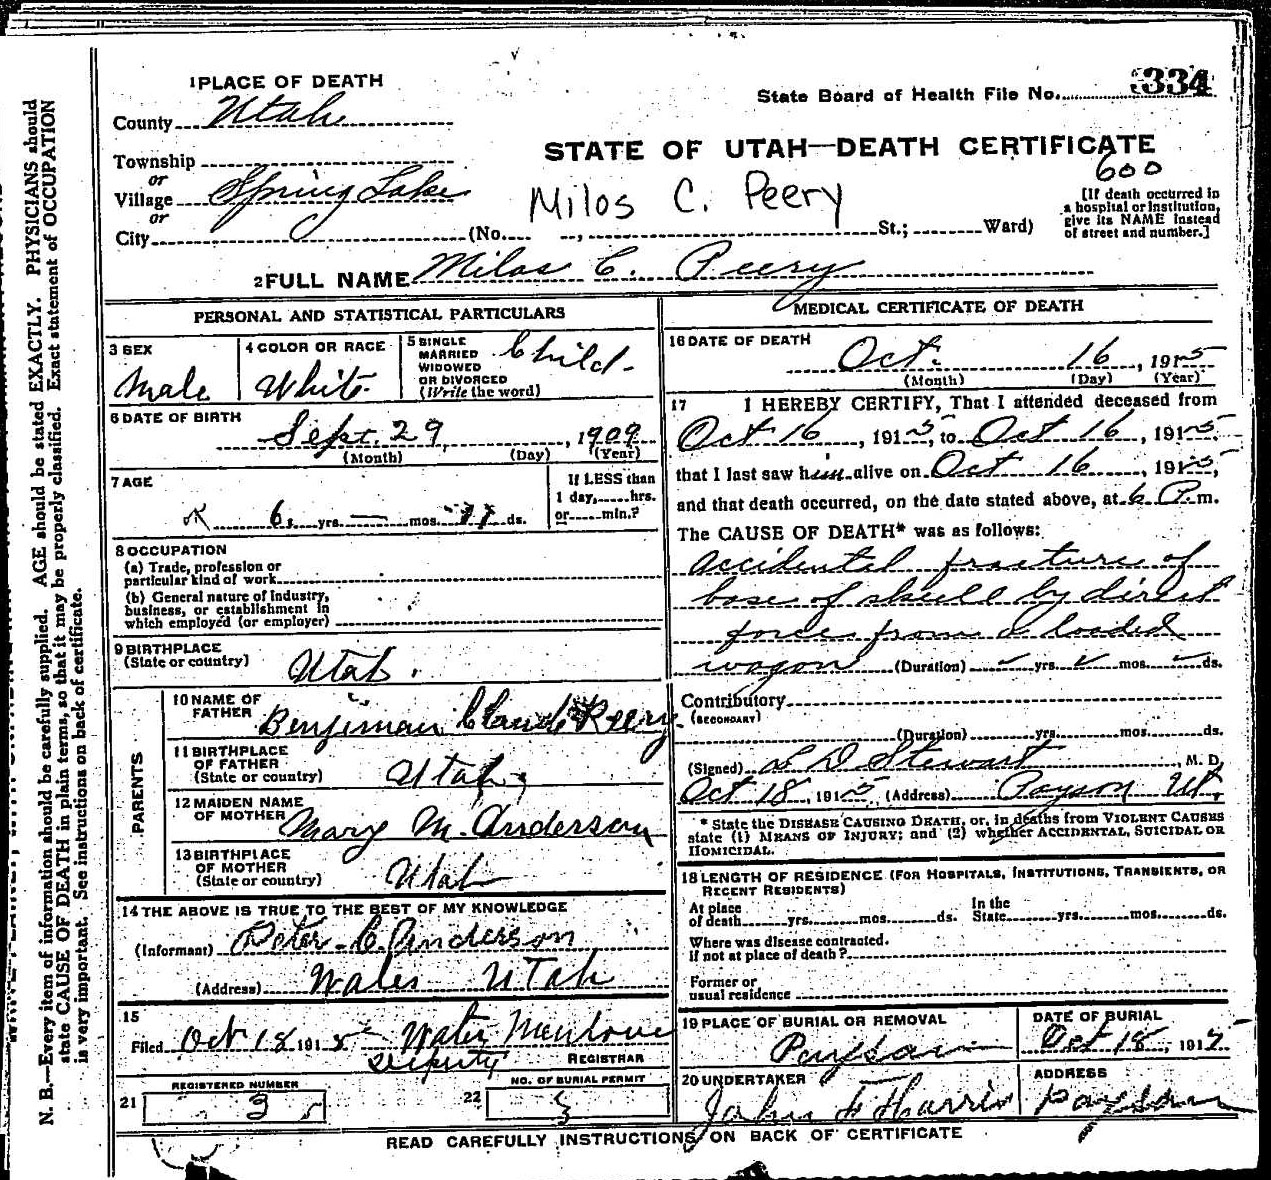 1 PLACE OF DEATH
State Board of Health File No. 334
County Utah
STATE OF UTAH—DEATH CERTIFICATE
600
Township
or
Village Spring Lake
or
City (No. , St.; Ward)
Milos C. Peery
[If death occurred in
a hospital or institution,
give its NAME instead
of street and number.]
2 FULL NAME Milas C. Peery
PERSONAL AND STATISTICAL PARTICULARS
3 SEX
Male
4 COLOR OR RACE
White
5 SINGLE
MARRIED
WIDOWED
OR DIVORCED
(Write the word)
Child
6 DATE OF BIRTH
Sept. 29, 1909
(Month) (Day) (Year)
7 AGE
6 yrs. — mos. 17 ds.
If LESS than
1 day, hrs.
or min.?
8 OCCUPATION
(a) Trade, profession or
particular kind of work
(b) General nature of industry,
business, or establishment in
which employed (or employer)
9 BIRTHPLACE
(State or country)
Utah.
PARENTS
10 NAME OF
FATHER
Benjiman Claud Peery
11 BIRTHPLACE
OF FATHER
(State or country)
Utah
12 MAIDEN NAME
OF MOTHER
Mary M. Anderson
13 BIRTHPLACE
OF MOTHER
(State or country)
Utah
14 THE ABOVE IS TRUE TO THE BEST OF MY KNOWLEDGE
(Informant) Peter C. Anderson
(Address) Wales Utah
15
Filed Oct 18 1915
Deputy REGISTRAR
21
REGISTERED NUMBER
3
22
NO. OF BURIAL PERMIT
3
MEDICAL CERTIFICATE OF DEATH
16 DATE OF DEATH
Oct. 16, 1915
(Month) (Day) (Year)
17 I HEREBY CERTIFY, That I attended deceased from
Oct 16, 1915, to Oct 16, 1915,
that I last saw him alive on Oct 16, 1915,
and that death occurred, on the date stated above, at 6 P.m.
The CAUSE OF DEATH* was as follows:
Accidental fracture of
base of skull by direct
force from a loaded
wagon (Duration) yrs. mos. ds.
Contributory
(SECONDARY)
(Duration) yrs. mos. ds.
(Signed) L D Stewart, M. D.
Oct 18, 1915 (Address) Payson Ut.
* State the DISEASE CAUSING DEATH, or, in deaths from VIOLENT CAUSES
state (1) MEANS OF INJURY; and (2) whether ACCIDENTAL, SUICIDAL OR
HOMICIDAL.
18 LENGTH OF RESIDENCE (FOR HOSPITALS, INSTITUTIONS, TRANSIENTS, OR
RECENT RESIDENTS)
At place
of death yrs. mos. ds.
In the
State yrs. mos. ds.
Where was disease contracted.
If not at place of death?
Former or
usual residence
19 PLACE OF BURIAL OR REMOVAL
Payson
DATE OF BURIAL
Oct 18, 1915
20 UNDERTAKER
John F Harris
ADDRESS
Payson
READ CAREFULLY INSTRUCTIONS ON BACK OF CERTIFICATE
N. B.—Every item of information should be carefully supplied. AGE should be stated EXACTLY. PHYSICIANS should
state CAUSE OF DEATH in plain terms, so that it may be properly classified. Exact statement of OCCUPATION
is very important. See instructions on back of certificate.